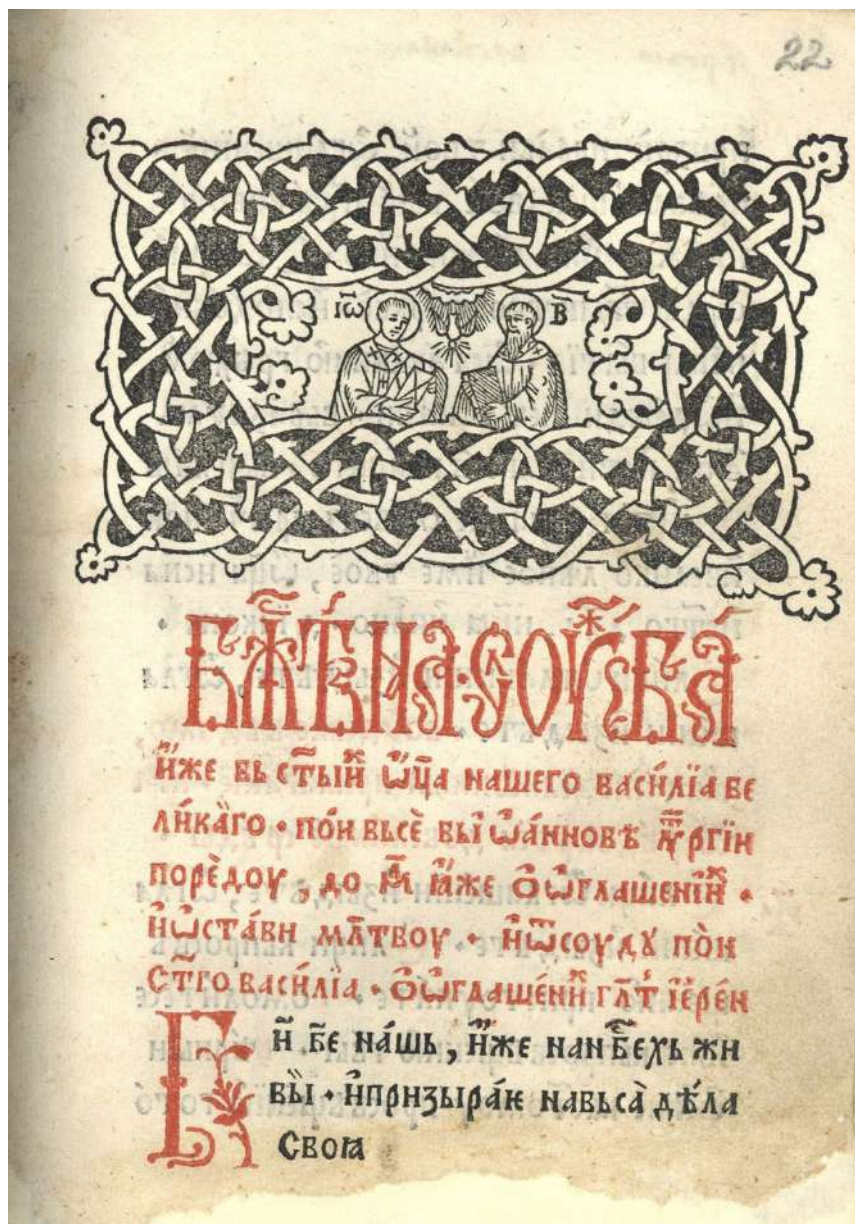 22
і҆ѡ҃ в҃
БЖⷭ҇ТВ҃НАꙖ · СꙊУЖⷧ҇БА́
и҆́же вь ст҃ы́иⷯ ѿц҃а нашего васи́лїа ве
ли́каⷢ҇го · по́и вьсѐ вы̑ і҆ѡа́нновѣ лⷮу́ргїи
порѐдоу , до мл҃ ꙗ҆́же о҆ѡ҆глашені́иⷯ ·
и҆ѡ҆ста́ви мл҃твоу · и҆ѿсоуду по̀и
ст҃го васи́лїа · о҆ѡ҆глаше́ниⷯ гл҃т і҆ере́и
Г҃и б҃е на́шь , и҆́же на нб҃сехь жи
вы̏и · и҆призыра́ѥ навьса̀ дѣ́ла
своꙗ